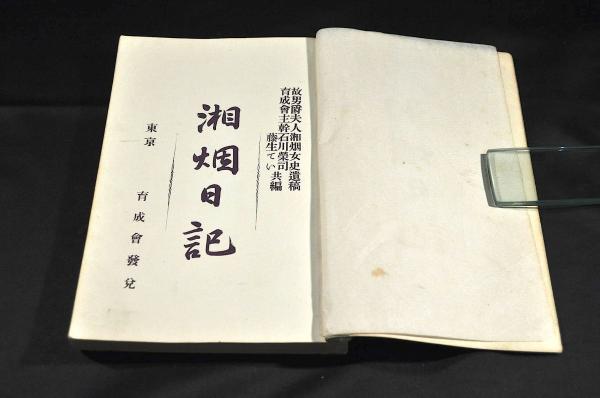 故男爵夫人湘烟女史遺稿
育成會主幹石川榮司共編
藤生てい
湘烟日記
東京
育成會發兌